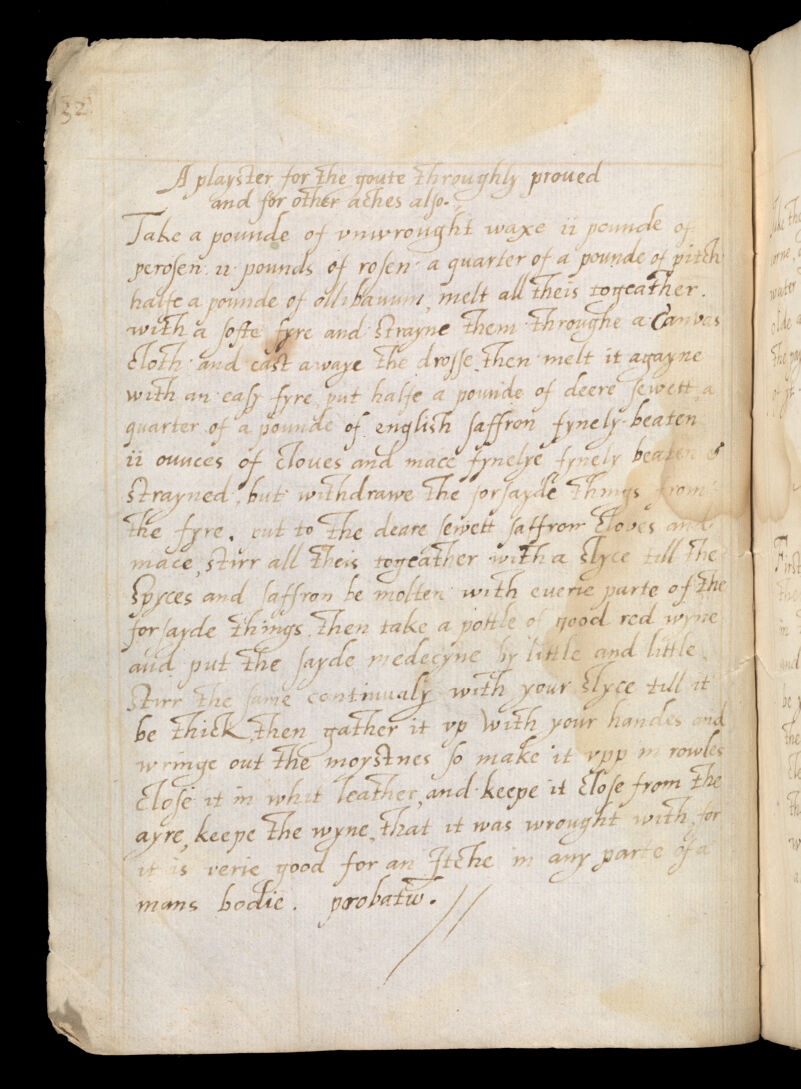 32
A playster for the goute throughly proued
and for other aches also.
Take a pounde of vnwrought waxe ii pounde of
perosen ii pounds of rosen a quarter of a pounde of pitch
halfe a pounde of ollibanum, melt all theis togeather.
with a softe fyre and strayne them throughe a Canvas
cloth and cast awaye the drosse, then melt it agayne
with an easy fyre, put halfe a pounde of deere sewett, a
quarter of a pounde of english saffron fynely beaten
ii ounces of cloves and mace fynelye fynely beaten &
strayned, but withdrawe the forsayde things from
the fyre, put to the deare sewett saffron Cloves and
mace, stirr all theis togeather with a slyce till the
Spyces and saffron be molten with euerie parte of the
forsayde things, then take a pottle of good red wyne
and put the sayde medecyne by little and little
Stirr the same continualy with your slyce till it
be thick, then gather it vp with your handes and
wringe out the moystnes so make it vpp in rowles
Close it in whit leather, and keepe it close from the
ayre, keepe the wyne, that it was wrought with, for
it is verie good for an Itche in any parte of a
mans bodie. probatu. //